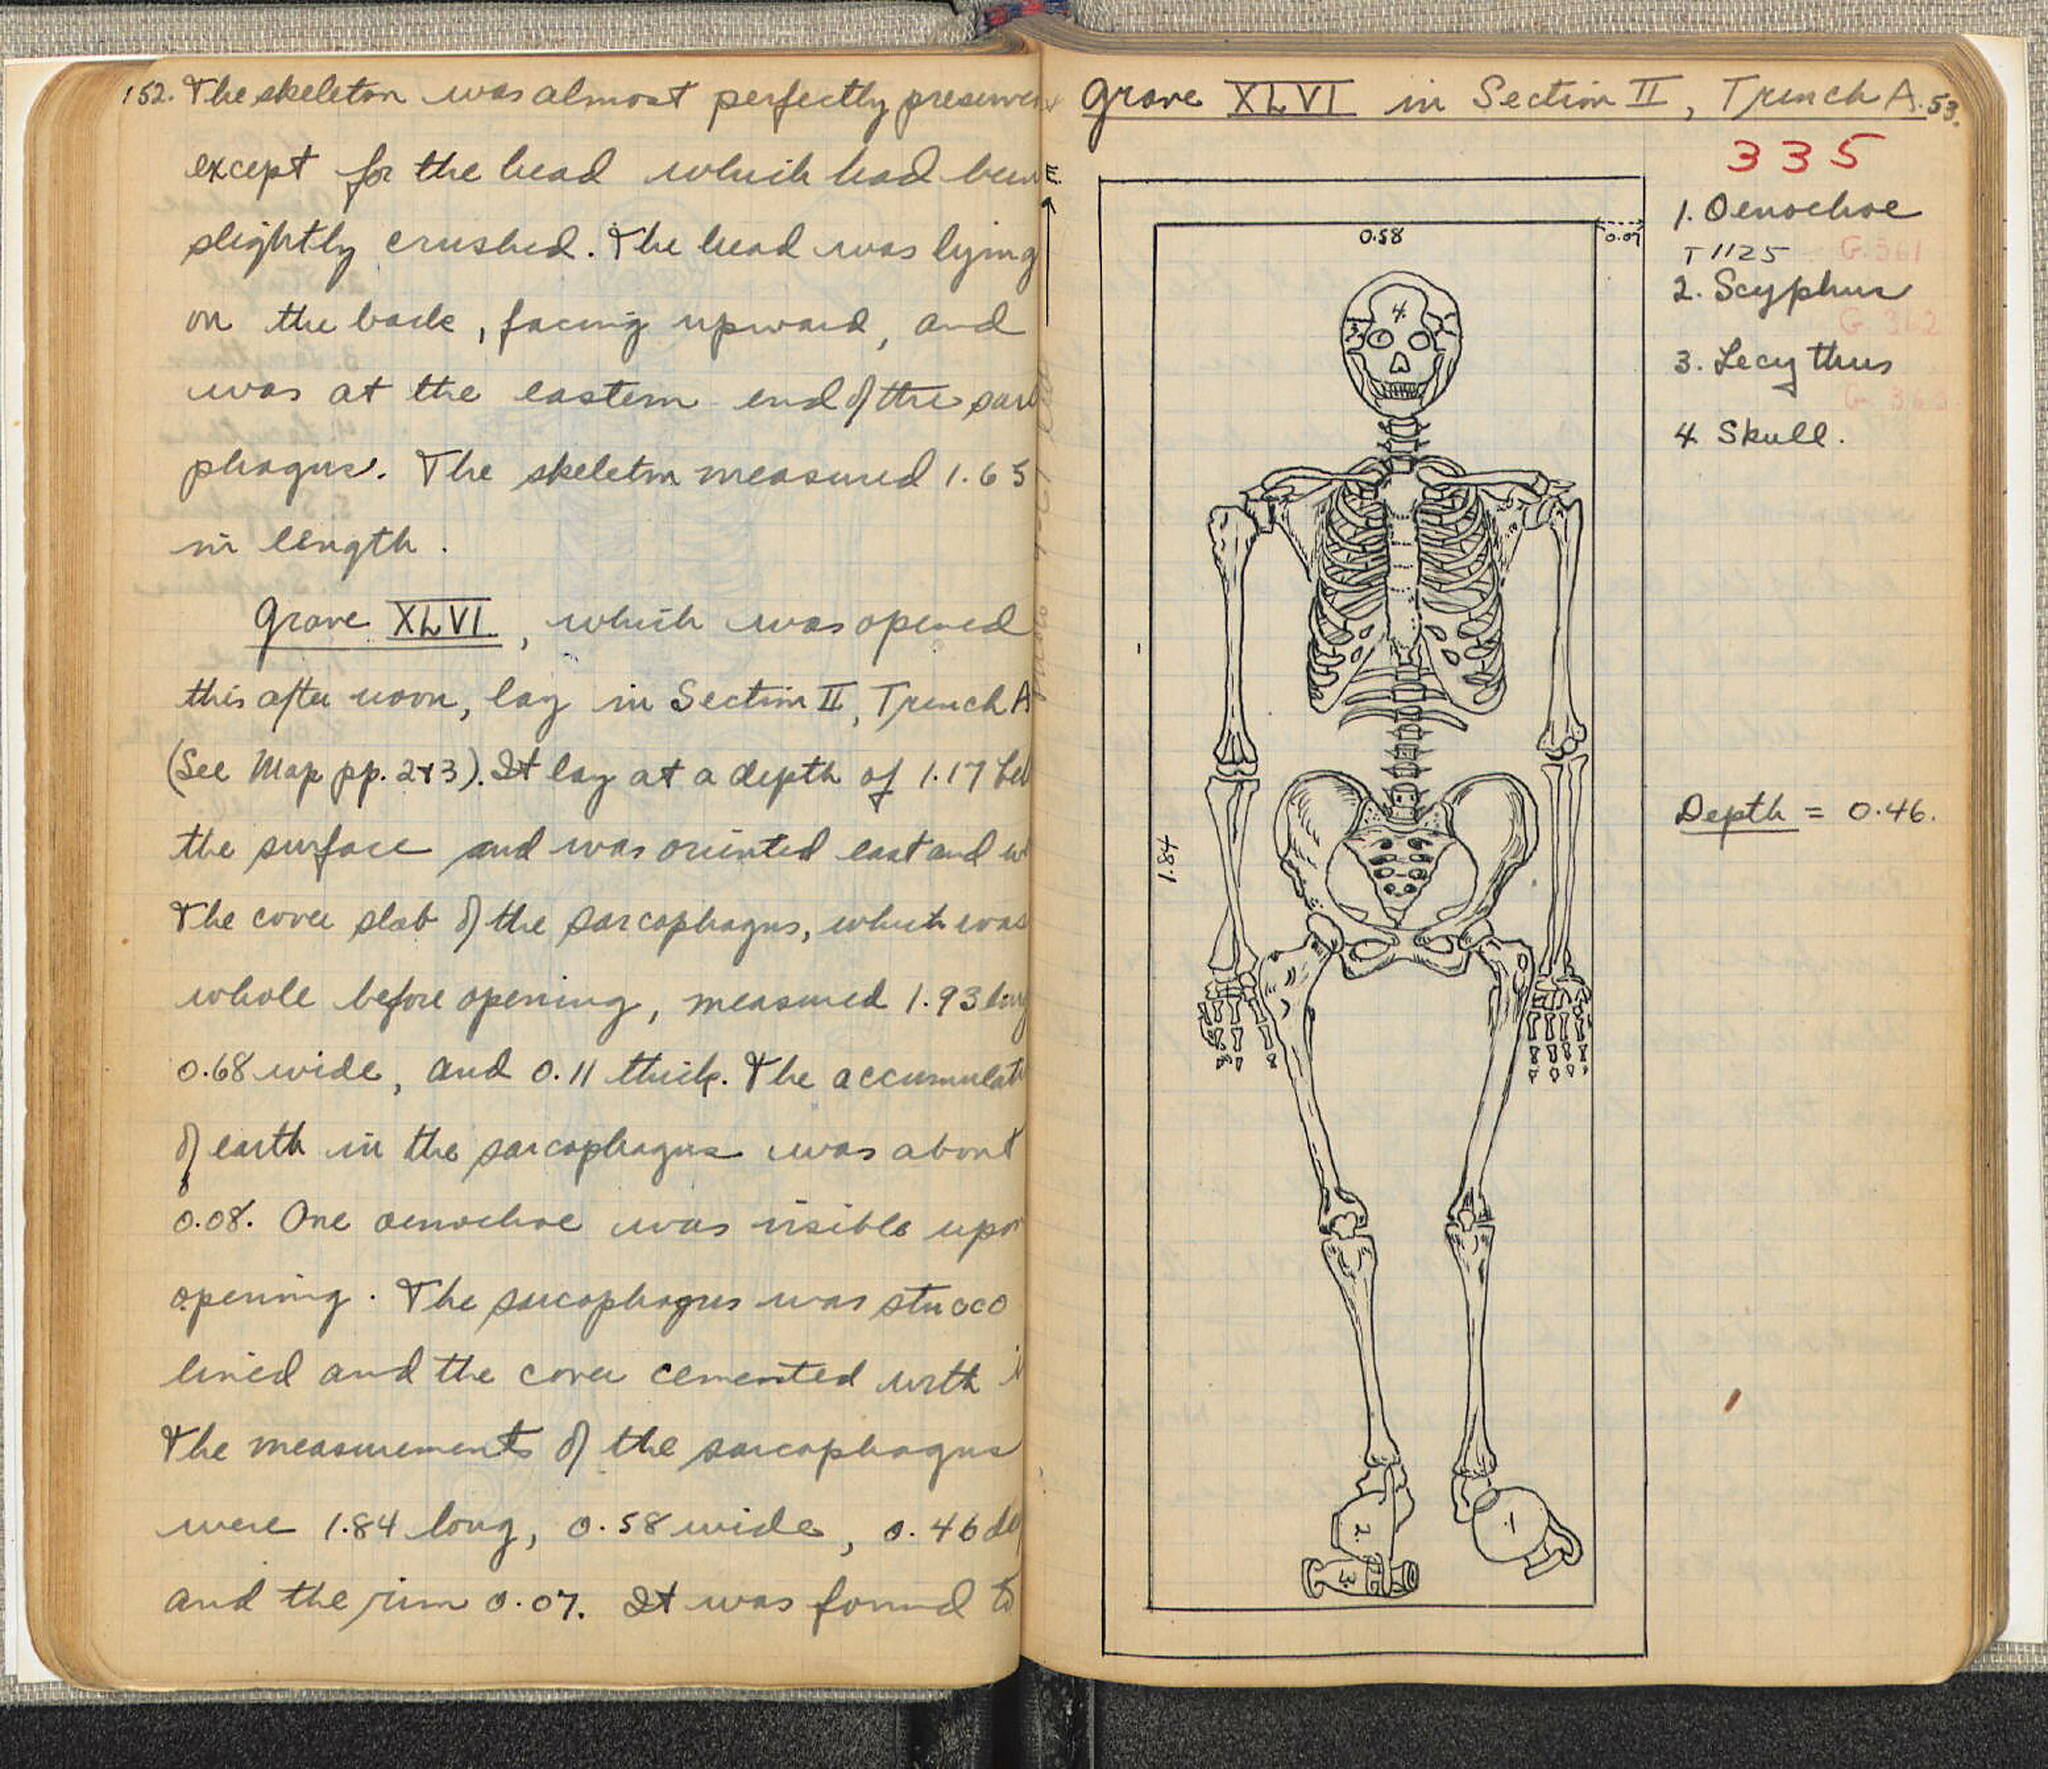 152. The skeleton was almost perfectly preserved
except for the head which had been
slightly crushed. The head was lying
on the back, facing upward, and
was at the eastern end of the sarco
phagus. The skeleton measured 1.65
in length.
Grave XLVI, which was opened
this after noon, lay in Section II, Trench A
(See Map pp. 2+3). It lay at a depth of 1.17 bel
the surface and was oriented east and w
The cover slab of the sarcophagus, which was
whole before opening, measured 1.93 long
0.68 wide, and 0.11 thick. The accumulati
of earth in the sarcophagus was about
0.08. One oenochoe was visible upon
opening. The sarcophagus was stucco
lined and the cover cemented with i
The measurements of the sarcophagus
were 1.84 long, 0.58 wide, 0.46 de
and the rim 0.07. It was found to
Grave XLVI in Section II, Trench A. 53.
335
E.
1. Oenochoe
T 1125 G.361
2. Scyphus
G 362
3. Lecythus
G 363
4. Skull.
Depth = 0.46.
0.58
0.07
4
3
1.84
2
1
3